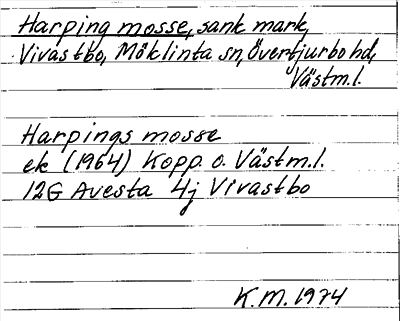 Harping mosse, sank mark,
Vivastbo, Möklinta sn, Övertjurbo hd,
Västm.l.
Harpings mosse
ek (1964) Kopp. o. Västm.l.
12G Avesta 4j Vivastbo
K.M. 1974